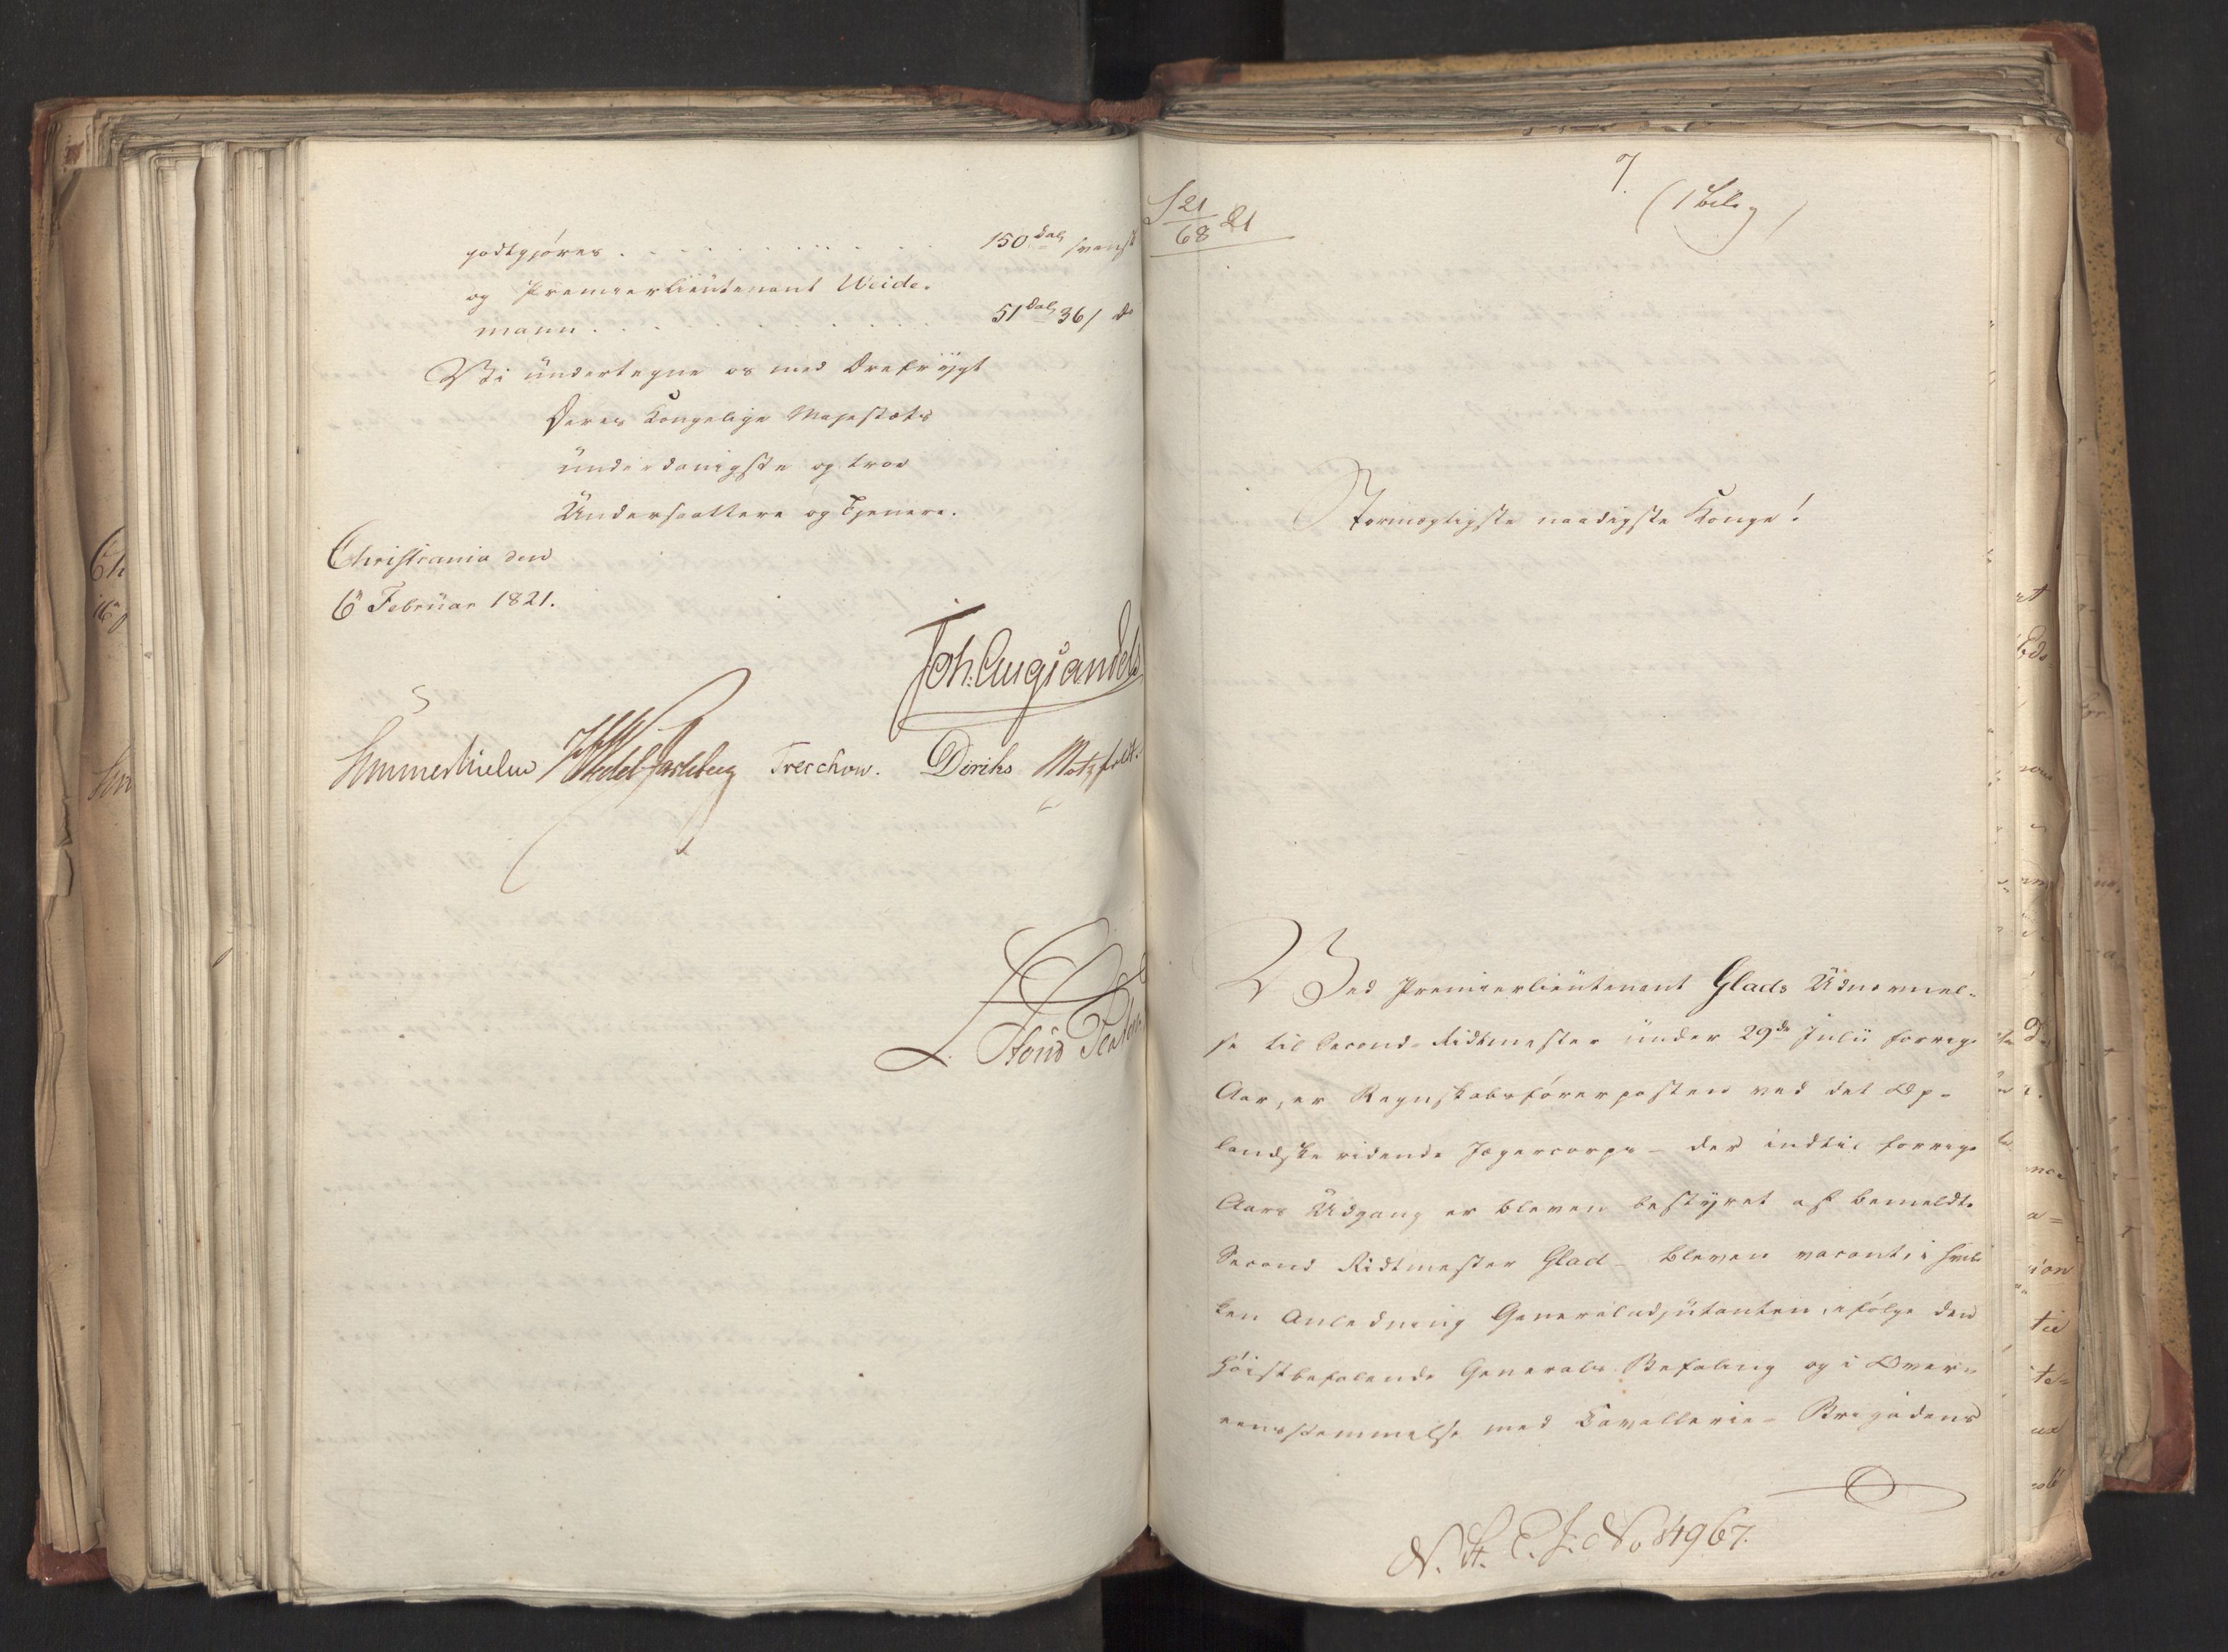 godtgjøres . . . . . . . . . . . 150 Dal svensk
og Premierlieutenant Weide-
mann . . . . . . . . . . . 51 Dal 36 / do
Vi undertegne os med Ærefrygt
Deres Kongelige Majestæts
underdanigste og troe
Undersaattere og Tjenere.
Christiania den
6 Februar 1821.
Joh: Aug: Sandels
Sommerhielm HWedel Jarlsberg Treschow. Diriks Motzfeldt.
7
(1 Bilag)
S 21/68 21
Stormægtigste naadigste Konge!
Ved Premierlieutenant Glads Udnævnel-
se til Second-Ridtmester under 29de Julii forrige
Aar, er Regnskabsførerposten ved det Op-
landske ridende Jægercorps – der indtil forrige
Aars Udgang er bleven bestyret af bemeldte
Second Ridtmester Glad – bleven vacant, i hvil-
ken Anledning Generaladjutanten, ifølge den
Høistbefalende Generals Befaling og i Over-
eensstemmelse med Cavallerie-Brigadens
N. St. E. J. No 4967.